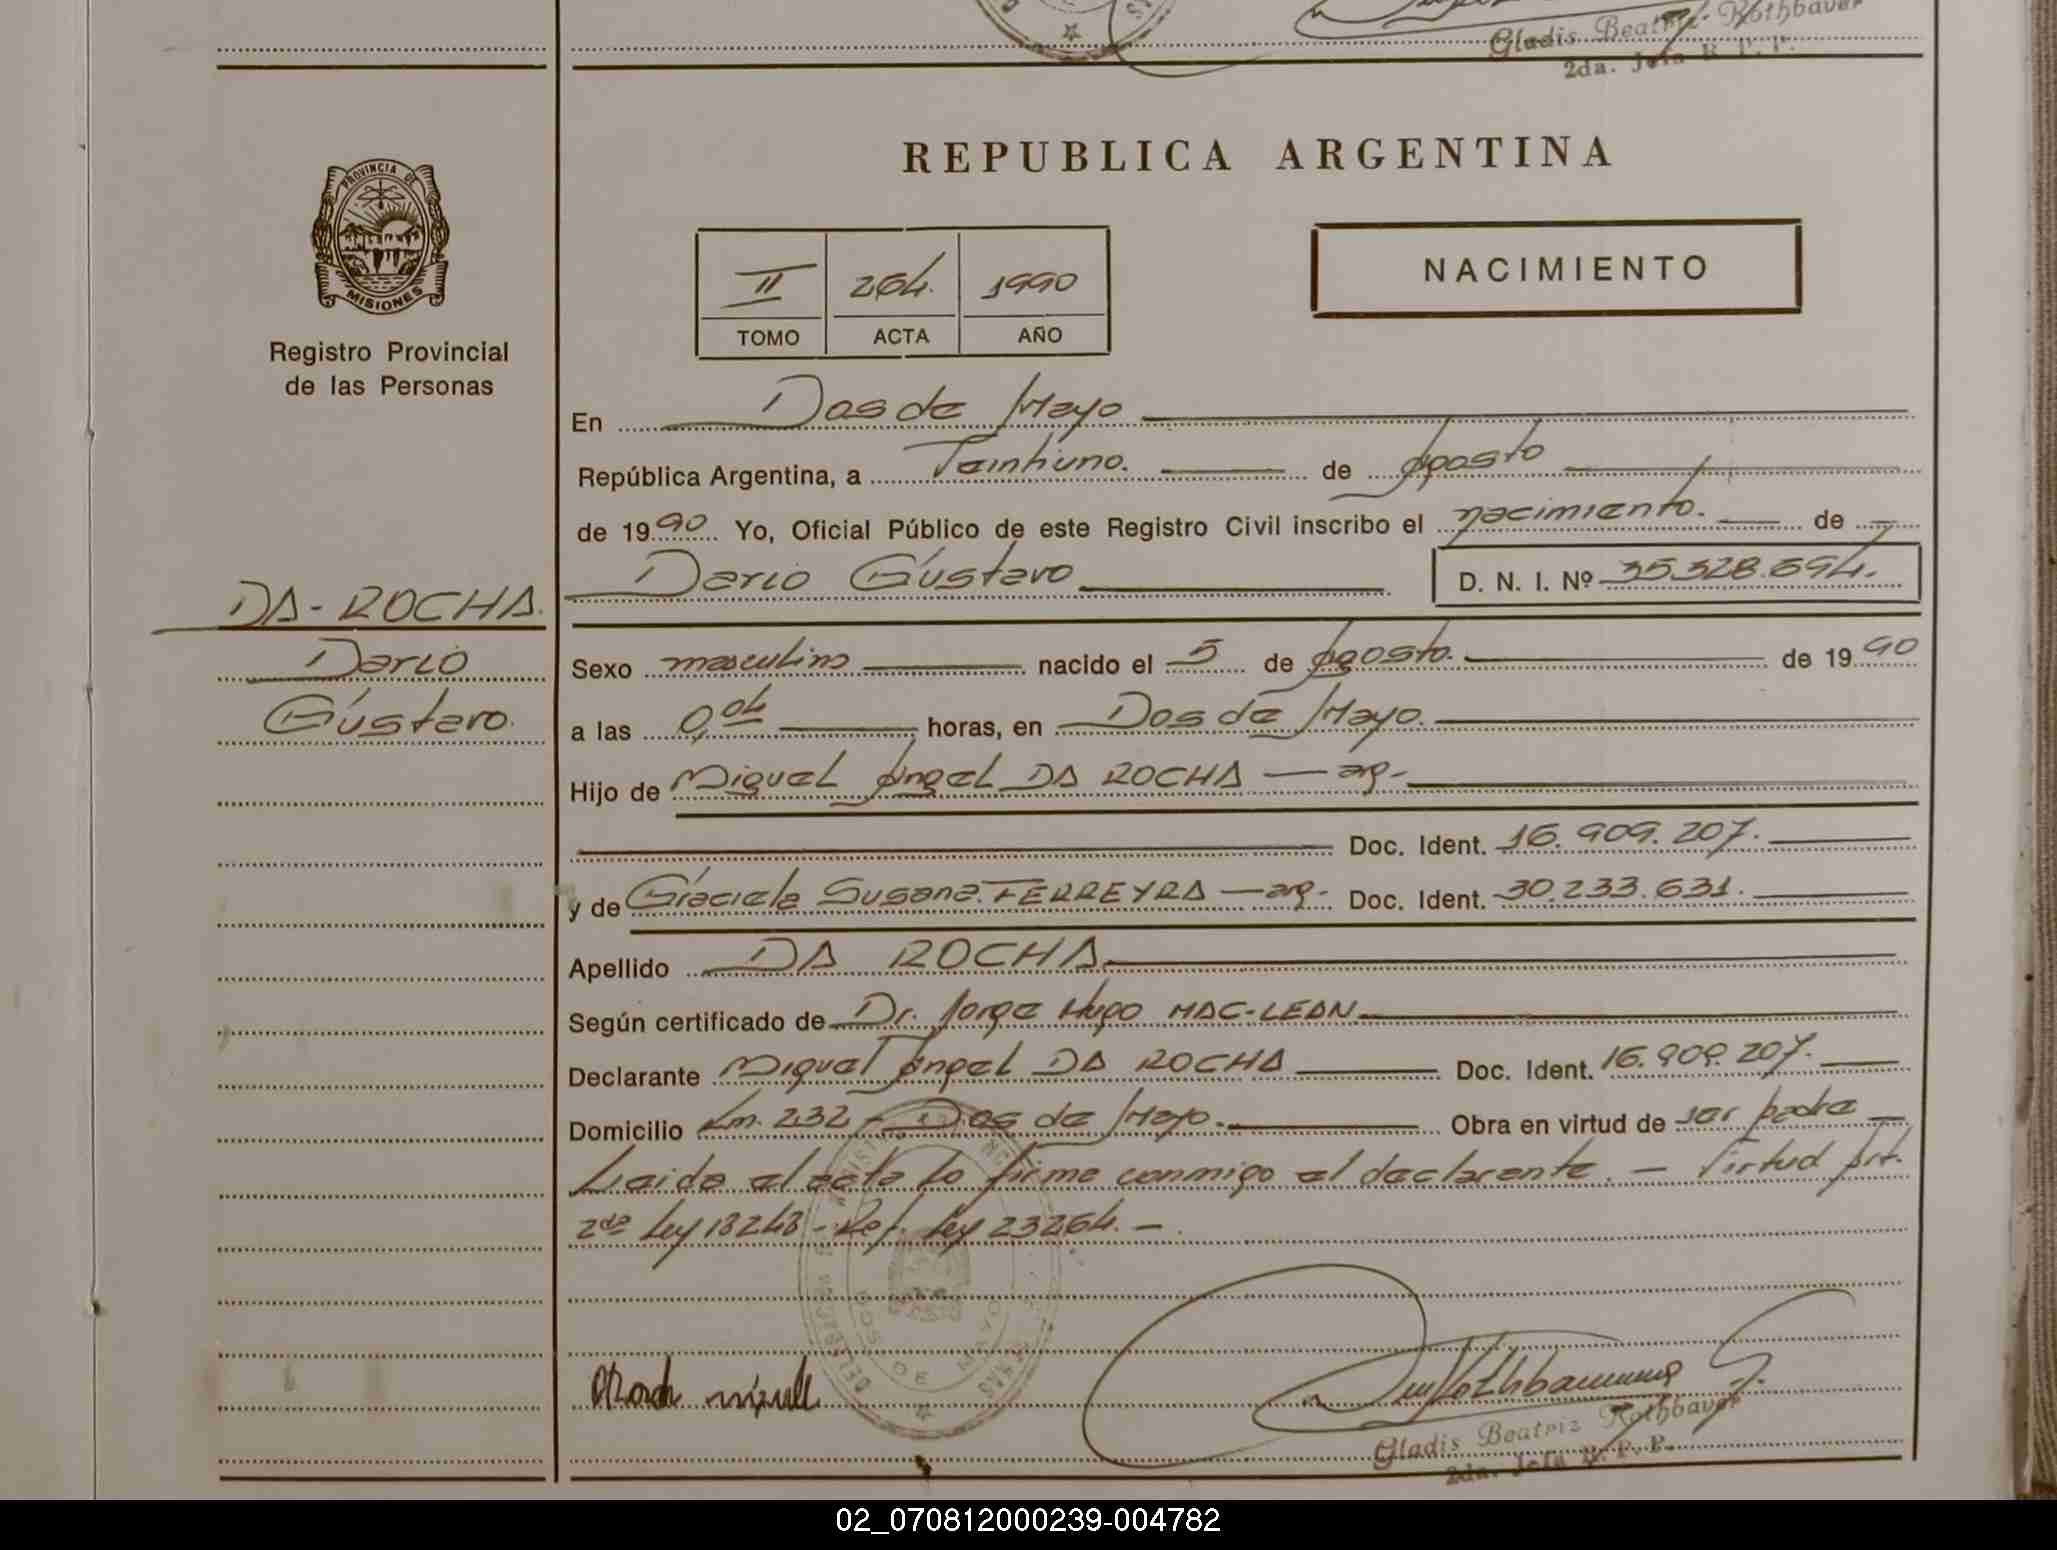 Gladis Beatriz Rothbaver
2da. Jefa R. P. P.
REPUBLICA ARGENTINA
PROVINCIA DE
MISIONES
Registro Provincial
de las Personas
II 264. 1990
TOMO ACTA AÑO
NACIMIENTO
En Dos de Mayo
República Argentina, a Veintiuno. de Agosto
de 1990 Yo, Oficial Público de este Registro Civil inscribo el nacimiento. de
Dario Gustavo D. N. I. Nº 35.328.694.
DA-ROCHA.
Dario
Gustavo.
Sexo masculino nacido el 5 de Agosto. de 1990
a las 0,04 horas, en Dos de Mayo.
Hijo de Miguel Angel DA ROCHA — arg-
Doc. Ident. 16.909.207.
y de Graciela Susana FERREYRA — arg- Doc. Ident. 30.233.631.
Apellido DA ROCHA
Según certificado de Dr. Jorge Hugo MAC-LEAN.
Declarante Miguel Angel DA ROCHA Doc. Ident. 16.909.207.
Domicilio Km. 232 - Dos de Mayo. Obra en virtud de ser padre
Leida el acta la firma conmigo el declarante. — Virtud Art.
2do Ley 18248 - Ref. Ley 23264. —
DOS DE MAYO
Gladis Beatriz Rothbaver
2da. Jefa R. P. P.
02_070812000239-004782